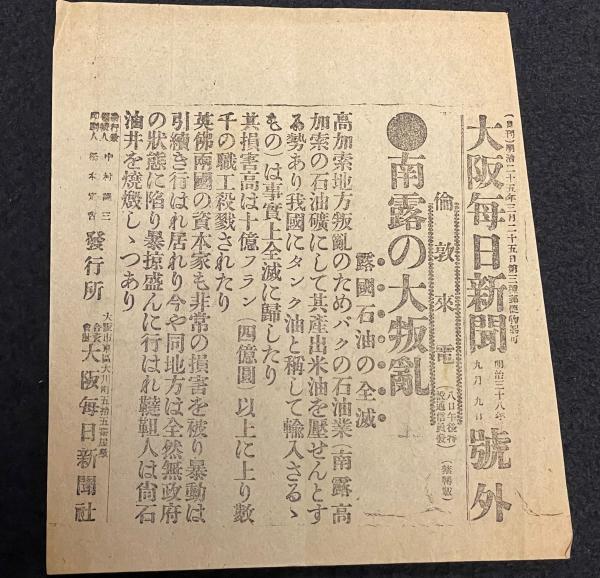 (日刊)明治二十五年三月二十五日第三種郵便物認可
大阪每日新聞 明治三十八年九月九日 號外
倫敦來電 (八日午後特設通信員發) (禁轉載)
●南露の大叛亂
露國石油の全滅
高加索地方叛亂のためバクの石油業(南露高
加索の石油礦にして其產出米油を壓せんとす
る勢あり我國にタンク油と稱して輸入さるゝ
もの)は事實上全滅に歸したり
其損害高は十億フラン(四億圓)以上に上り數
千の職工殺戮されたり
英佛兩國の資本家も非常の損害を被り暴動は
引續き行はれ居れり今や同地方は全然無政府
の狀態に陷り暴掠盛んに行はれ韃靼人は尙石
油井を燒燬しゝつあり
發行所 大阪每日新聞社